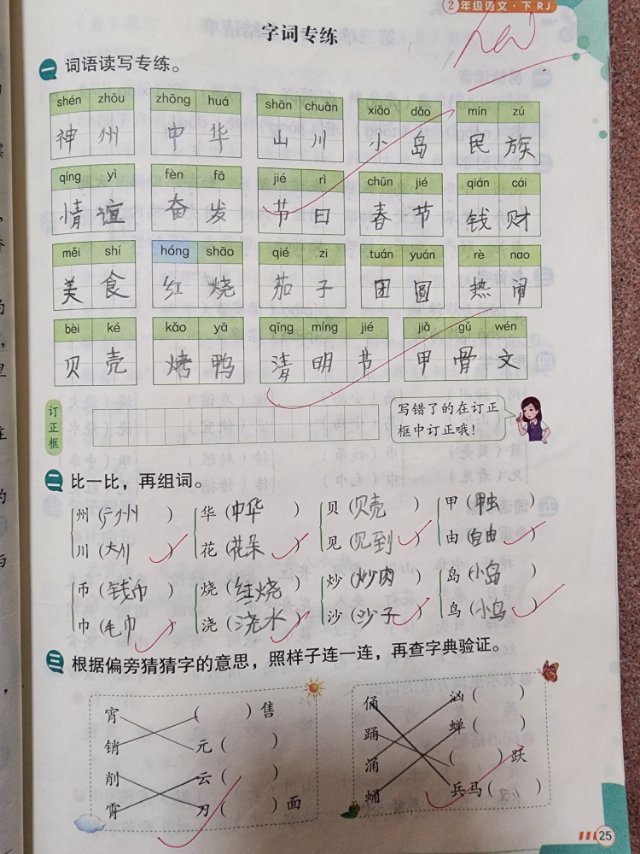 2年级语文·下 RJ
字词专练
一 词语读写专练。
shén zhōu zhōng huá shān chuān xiǎo dǎo mín zú
神州 中华 山川 小岛 民族
qíng yì fèn fā jié rì chūn jié qián cái
情谊 奋发 节日 春节 钱财
měi shí hóng shāo qié zi tuán yuán rè nao
美食 红烧 茄子 团圆 热闹
bèi ké kǎo yā qīng míng jié jiǎ gǔ wén
贝壳 烤鸭 清明节 甲骨文
订正框
写错了的在订正
框中订正哦！
二 比一比，再组词。
州（广州） 华（中华） 贝（贝壳） 甲（甲虫）
川（大川） 花（花朵） 见（见到） 由（自由）
币（钱币） 烧（红烧） 炒（炒肉） 岛（小岛）
巾（毛巾） 浇（浇水） 沙（沙子） 鸟（小鸟）
三 根据偏旁猜猜字的意思，照样子连一连，再查字典验证。
宵 （ ）售 俑 汹（ ）
销 元（ ） 踊 蝉（ ）
削 云（ ） 涌 （ ）跃
霄 刀（ ）面 蛹 兵马（ ）
25